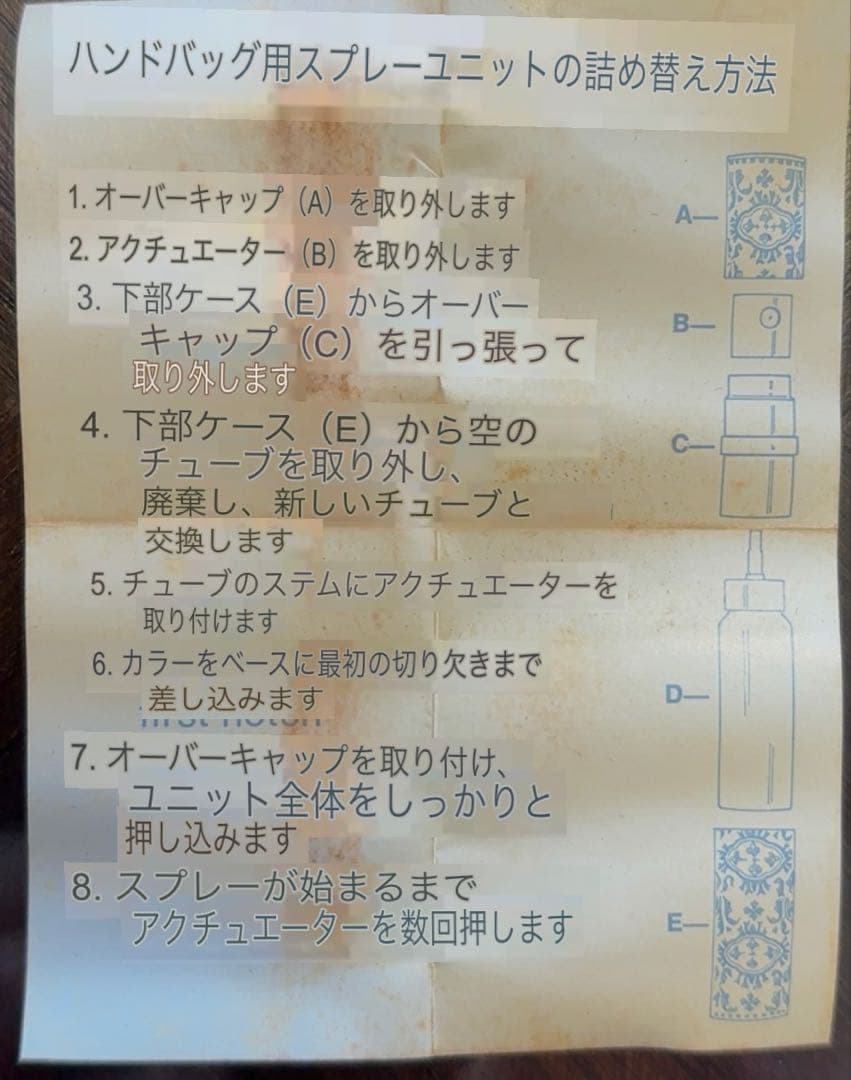 ハンドバッグ用スプレーユニットの詰め替え方法
1. オーバーキャップ（A）を取り外します
2. アクチュエーター（B）を取り外します
3. 下部ケース（E）からオーバー
キャップ（C）を引っ張って
取り外します
4. 下部ケース（E）から空の
チューブを取り外し、
廃棄し、新しいチューブと
交換します
5. チューブのステムにアクチュエーターを
取り付けます
6. カラーをベースに最初の切り欠きまで
差し込みます
first notch
7. オーバーキャップを取り付け、
ユニット全体をしっかりと
押し込みます
8. スプレーが始まるまで
アクチュエーターを数回押します
A
B
C
D
E